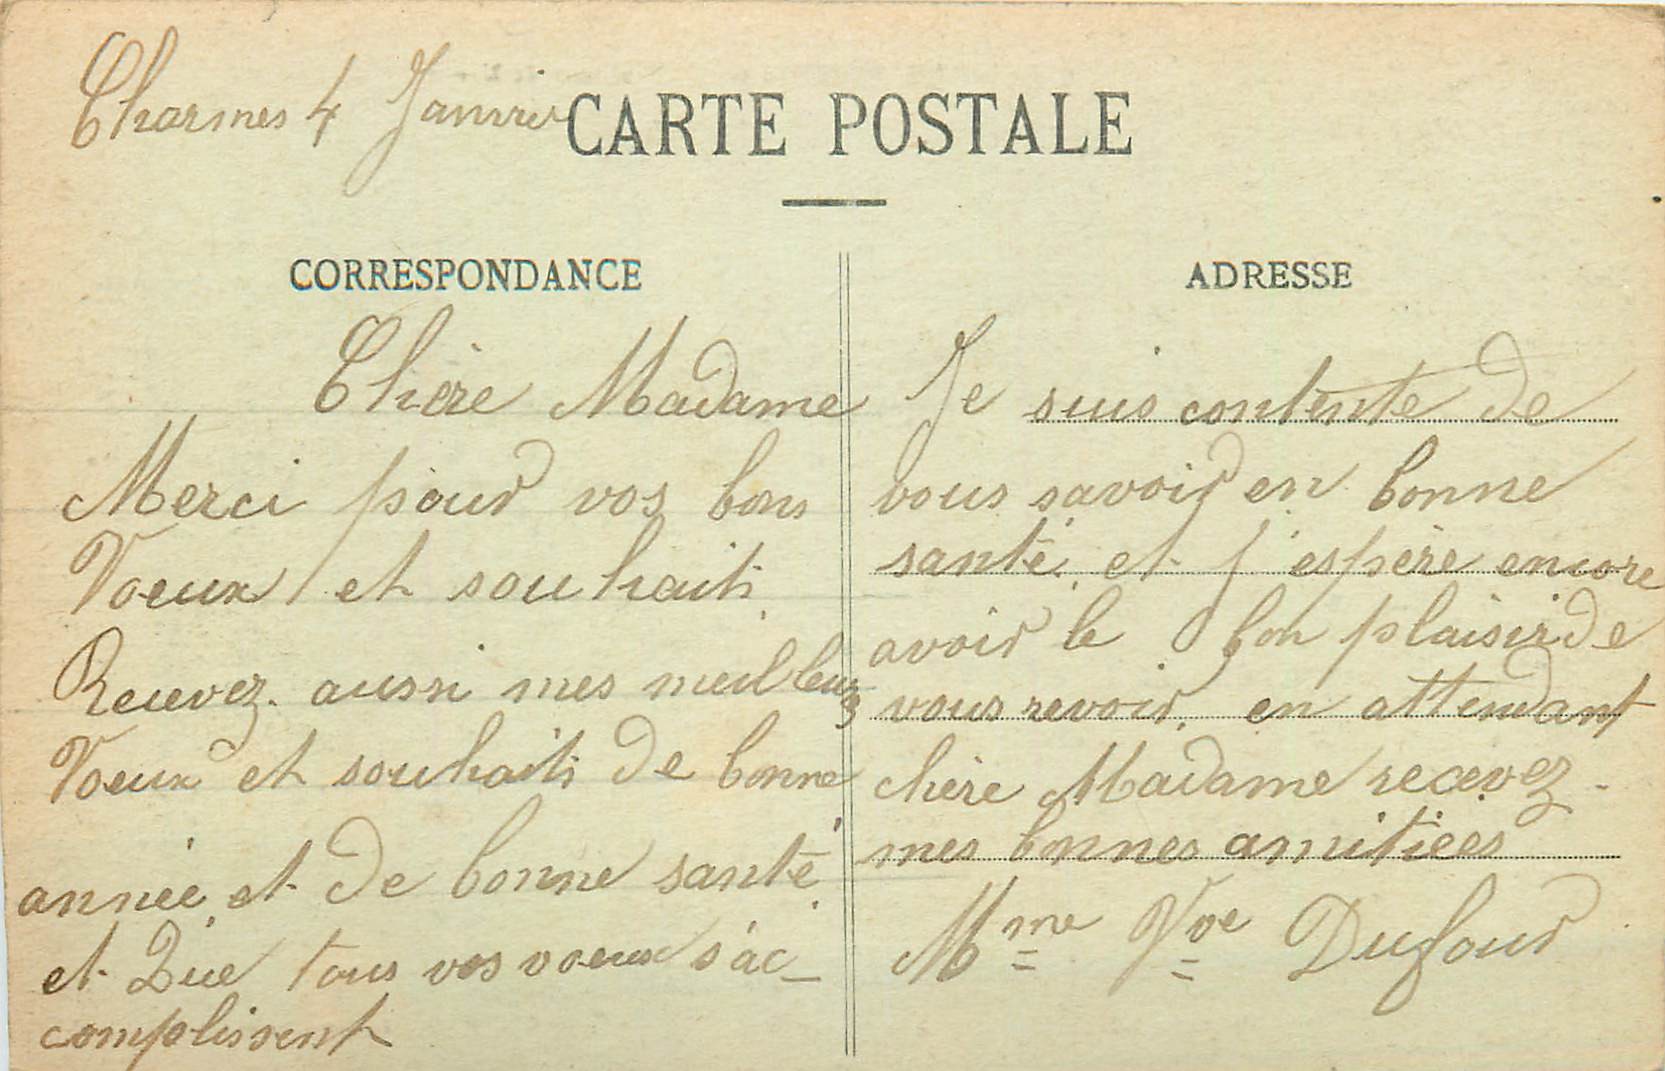 Charmes 4 Janvier
CARTE POSTALE
CORRESPONDANCE
Chère Madame
Merci pour vos bons
Voeux et souhaits
Recevez aussi mes meilleurs
Voeux et souhaits de bonne
année et de bonne santé
et Que tous vos voeux s'ac-
complissent
ADRESSE
Je suis contente de
vous savoir en bonne
santé, et j'espère encore
avoir le bon plaisir de
vous revoir, en attendant
chère Madame recevez
mes bonnes amitiées
Mme Vve Dufour